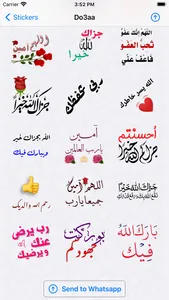 3:52 PM
Stickers
Do3aa
اللهم آمين
جزاك
الله
خيرا
اللهم إنك عفو
تحب العفو
فاعف عني
جزاك الله خيرا
ربي يحفظك
الله يسر خاطرك
الله يجزاك خير
ويبارك فيك
آمين
يارب العالمين
أحسنتم
جزاكم الله خيرا
رحم الله والديك
اللهم آمين
يارب
العالمين
بارك الله
فيك
رب يرضى
عنك
ويرضيك
بوركت
جهودكم
Send to Whatsapp